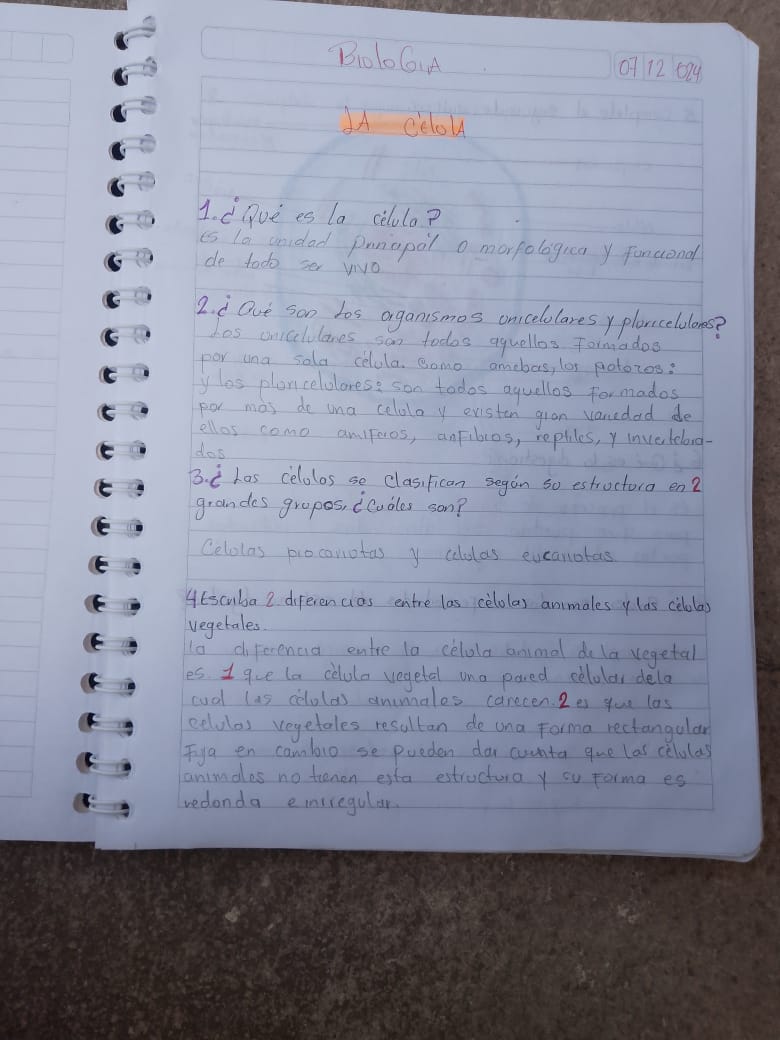 BioloGiA
07 12 024
LA CélulA
1.¿Qué es la célula?
es la unidad principal o morfológica y funcional
de todo ser vivo
2.¿Qué son los organismos unicelulares y pluricelulares?
Los unicelulares son todos aquellos formados
por una sola célula. Como amebas, los
y los pluricelulares: son todos aquellos formados
por más de una celula y existen gran variedad de
ellos como amiferos, anfibios, reptiles, y invertebra-
dos
3.¿ Las células se clasifican según su estructura en 2
grandes grupos, ¿Cuáles son?
Celulas procariotas y celulas eucariotas
4 Escriba 2 diferencias entre las células animales y las células
vegetales.
la diferencia entre la célula animal de la vegetal
es 1 que la célula vegetal una pared célular dela
cual las células animales carecen. 2 es que las
celulas vegetales resultan de una forma rectangular
Fija en cambio se pueden dar cuenta que las células
animales no tienen esta estructura y su forma es
redonda e inrregular.